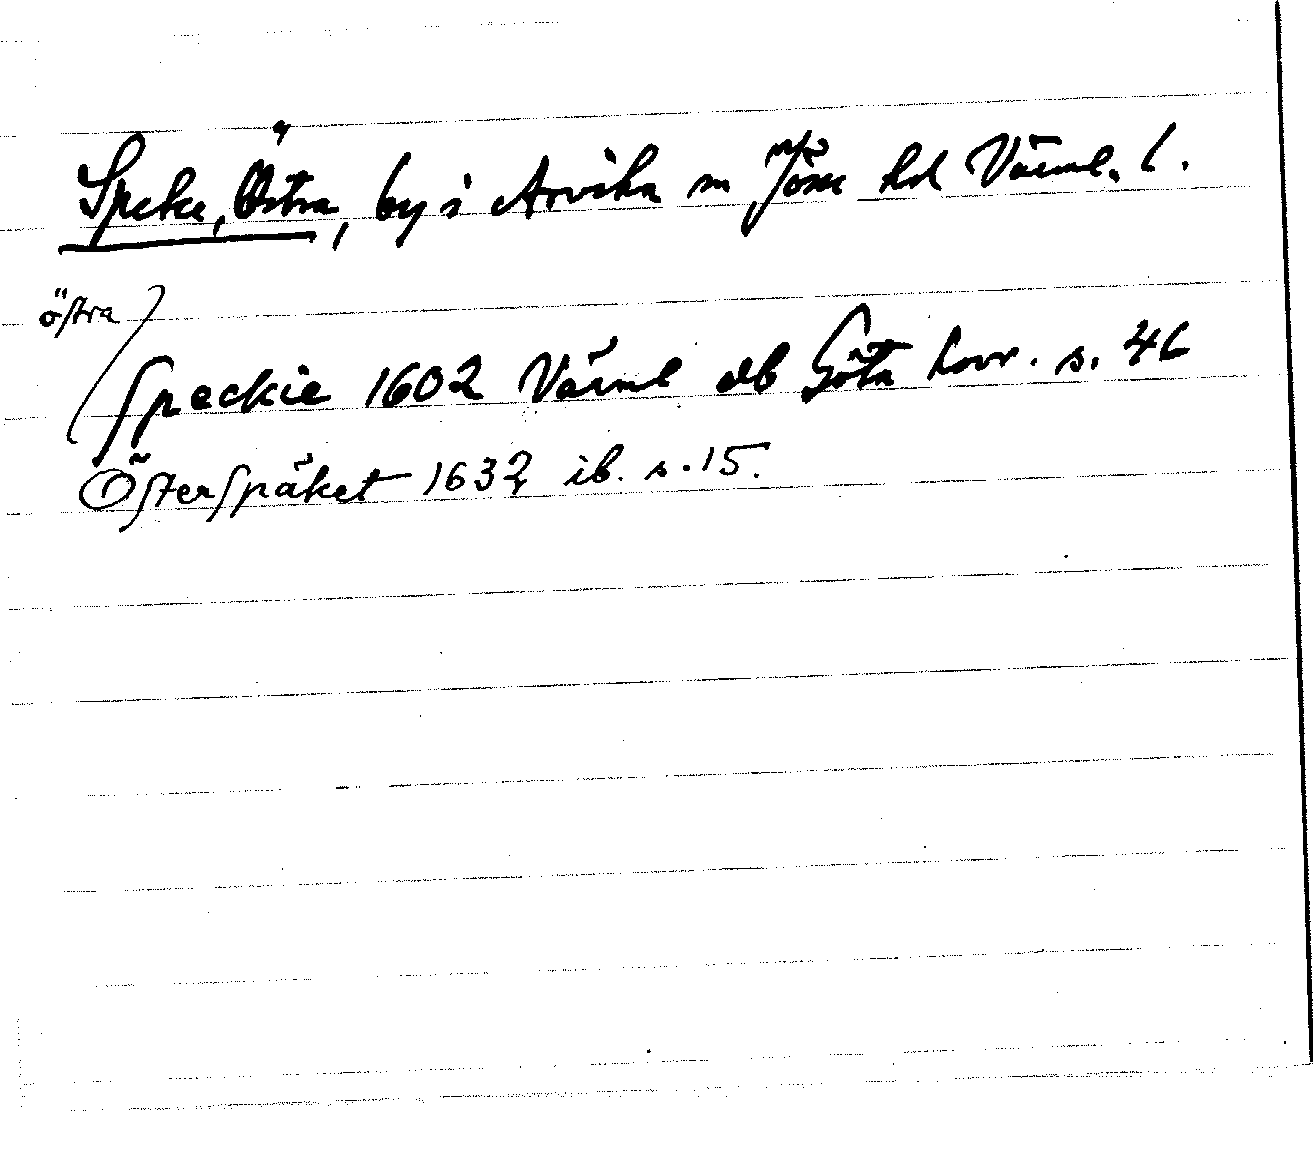 Speke, Östra, by i Arvika sn Jösse hd Värml. l.
östra
Speckie 1602 Värml äb Göta hovr. s. 46
Österspäket 1632 ib. s. 15.